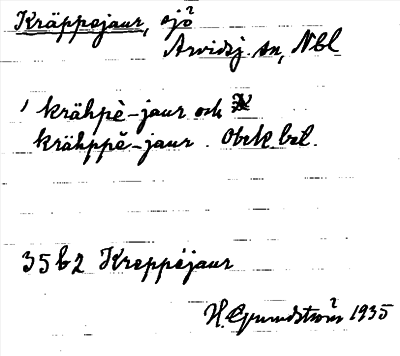 Kräppejaur, sjö
Arvidsj. sn, Nbl
krähpè-jaur och
krähppè-jaur. Obek bet.
35b2 Kreppejaur
H. Grundström 1935